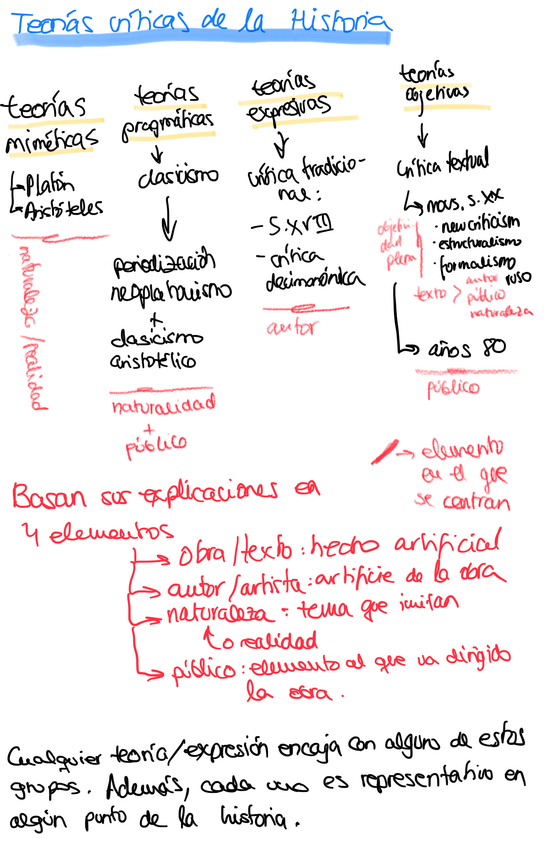 Teorías críticas de la Historia
teorías
miméticas
Platón
Aristóteles
naturaleza/realidad
teorías
pragmáticas
clasicismo
periodización
neoplatonismo
+
clasicismo
aristotélico
naturalidad
+
público
teorías
expresivas
crítica tradicio-
nal:
- S.XVIII
- crítica
decimonónica
autor
teorías
objetivas
crítica textual
movs. s.XX
· new criticism
· estructuralismo
· formalismo
ruso
objetivi
dad
plena
texto > autor
público
naturaleza
años 80
público
→ elemento
en el que
se centran
Basan sus explicaciones en
4 elementos
→ obra/texto: hecho artificial
→ autor/artista: artífice de la obra
→ naturaleza: tema que imitan
o realidad
→ público: elemento al que va dirigido
la obra.
Cualquier teoría/expresión encaja con alguno de estos
grupos. Además, cada uno es representativo en
algún punto de la historia.